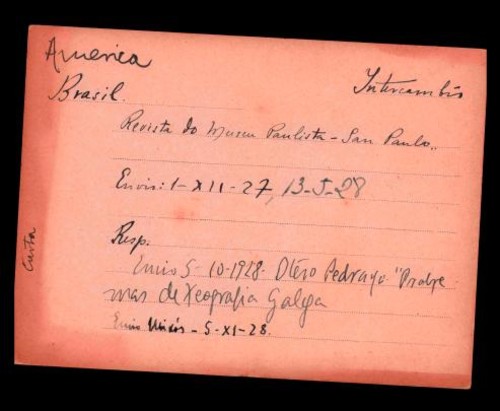 America
Intercambio
Brasil.
Revista do Museu Paulista - San Paulo..
Envios: 1-XII-27, 13-5-28
Resp.
Envio 5-10-1928. Otero Pedrayo "Probre
mas de Xeografia Galega
Envio - 5-XI-28.